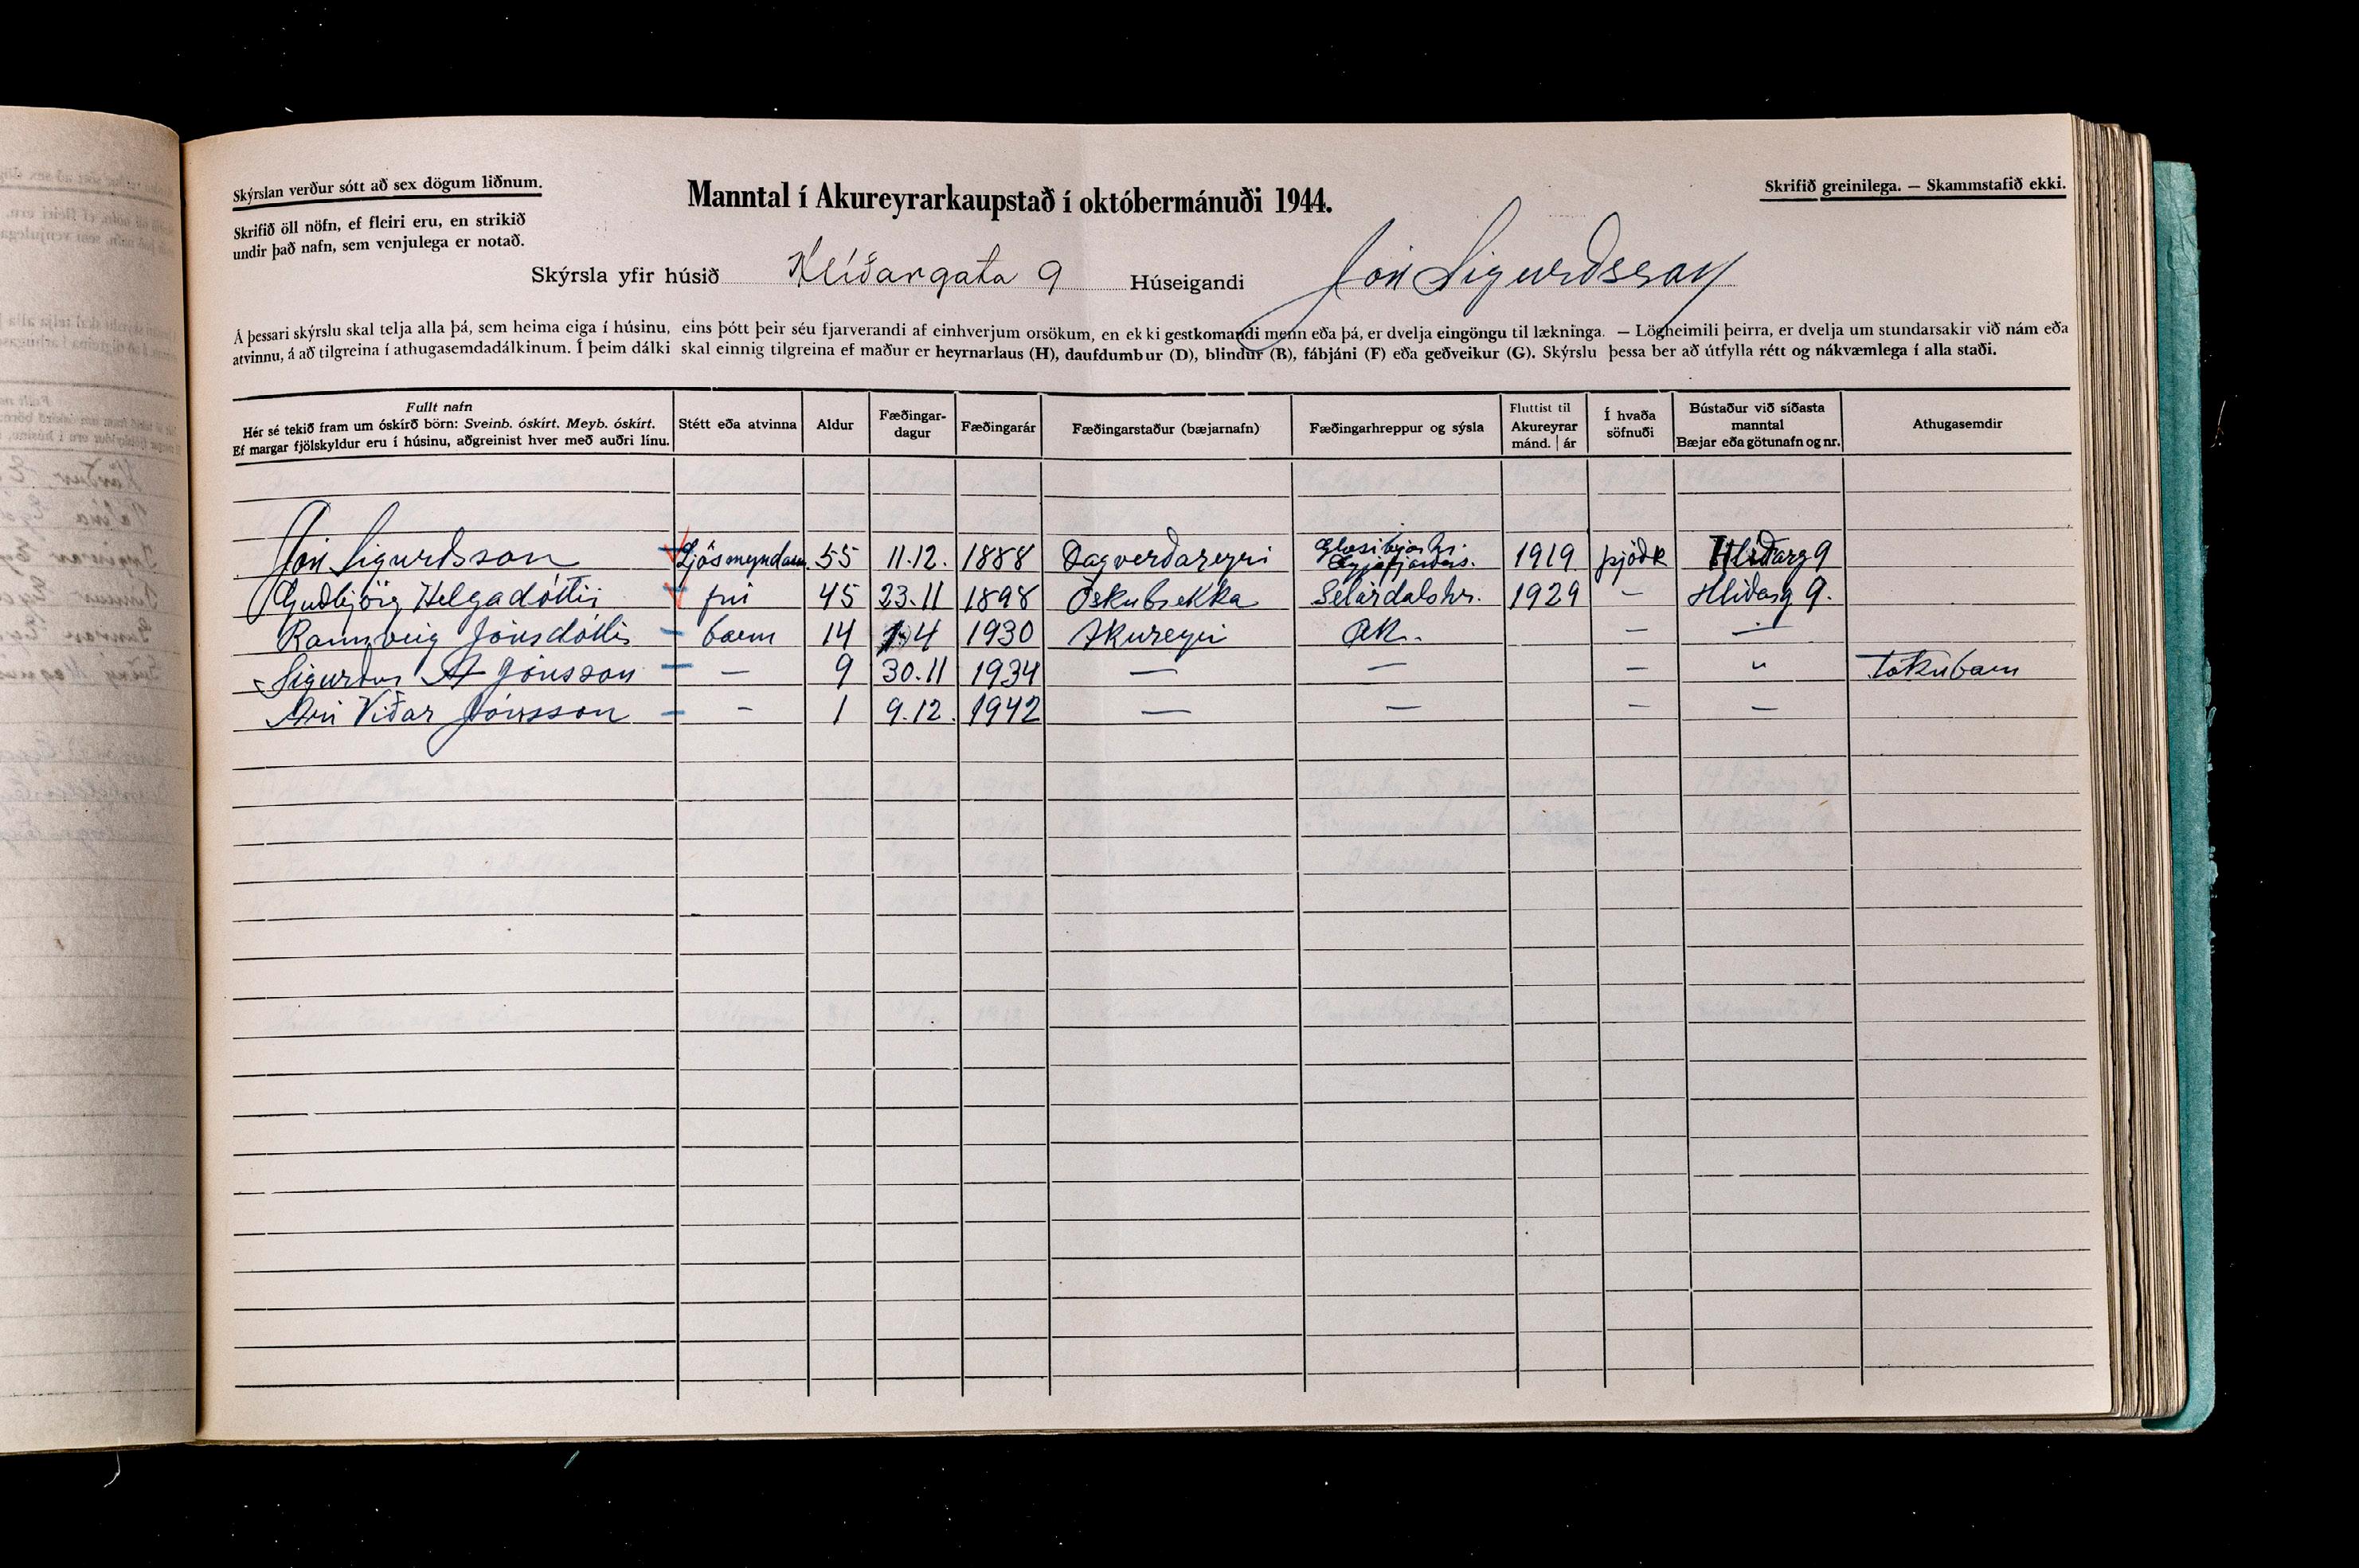 Skýrslan verður sótt að sex dögum liðnum.
Skrifið öll nöfn, ef fleiri eru, en strikið
undir það nafn, sem venjulega er notað.
Manntal í Akureyrarkaupstað í októbermánuði 1944.
Skrifið greinilega. — Skammstafið ekki.
Skýrsla yfir húsið Hlíðargata 9 Húseigandi Jón Sigurðsson
Á þessari skýrslu skal telja alla þá, sem heima eiga í húsinu, eins þótt þeir séu fjarverandi af einhverjum orsökum, en ekki gestkomandi menn eða þá, er dvelja eingöngu til lækninga. — Lögheimili þeirra, er dvelja um stundarsakir við nám eða
atvinnu, á að tilgreina í athugasemdadálkinum. Í þeim dálki skal einnig tilgreina ef maður er heyrnarlaus (H), daufdumbur (D), blindur (B), fábjáni (F) eða geðveikur (G). Skýrslu þessa ber að útfylla rétt og nákvæmlega í alla staði.
Fullt nafn
Hér sé tekið fram um óskírð börn: Sveinb. óskírt. Meyb. óskírt.
Ef margar fjölskyldur eru í húsinu, aðgreinist hver með auðri línu.
Stétt eða atvinna
Aldur
Fæðingar-
dagur
Fæðingarár
Fæðingarstaður (bæjarnafn)
Fæðingarhreppur og sýsla
Fluttist til
Akureyrar
mánd. | ár
Í hvaða
söfnuði
Bústaður við síðasta
manntal
Bæjar eða götunafn og nr.
Athugasemdir
Jón Sigurðsson Ljósmyndam. 55 11.12. 1888 Dagverðareyri Glæsibæjarhr. Eyjafjarðars. 1919 þjóðk Hlíðarg 9
Guðbjörg Helgadóttir frú 45 23.11 1898 Öskubrekka Selárdalshr. 1929 — Hlíðarg 9.
Rannveig Jónsdóttir barn 14 1.4 1930 Akureyri Ak. — —
Sigurður A Jónsson — 9 30.11 1934 — — — " tökubarn
Ari Viðar Jónsson — 1 9.12. 1942 — — — —